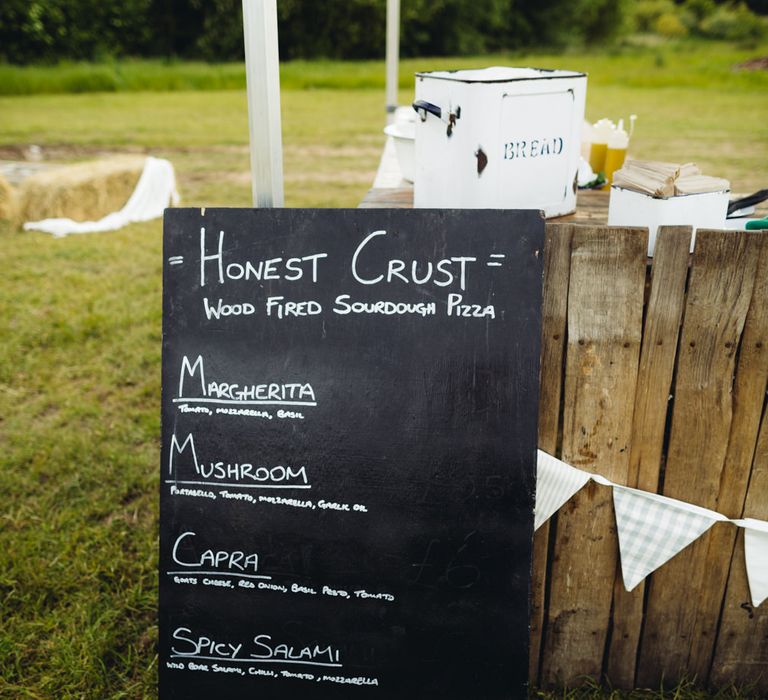 = HONEST CRUST =
WOOD FIRED SOURDOUGH PIZZA
MARGHERITA
TOMATO, MOZZARELLA, BASIL
MUSHROOM
PORTABELO, TOMATO, MOZZARELLA, GARLIC OIL
CAPRA
GOATS CHEESE, RED ONION, BASIL PESTO, TOMATO
SPICY SALAMI
WILD BOAR SALAMI, CHILLI, TOMATO, MOZZARELLA
BREAD